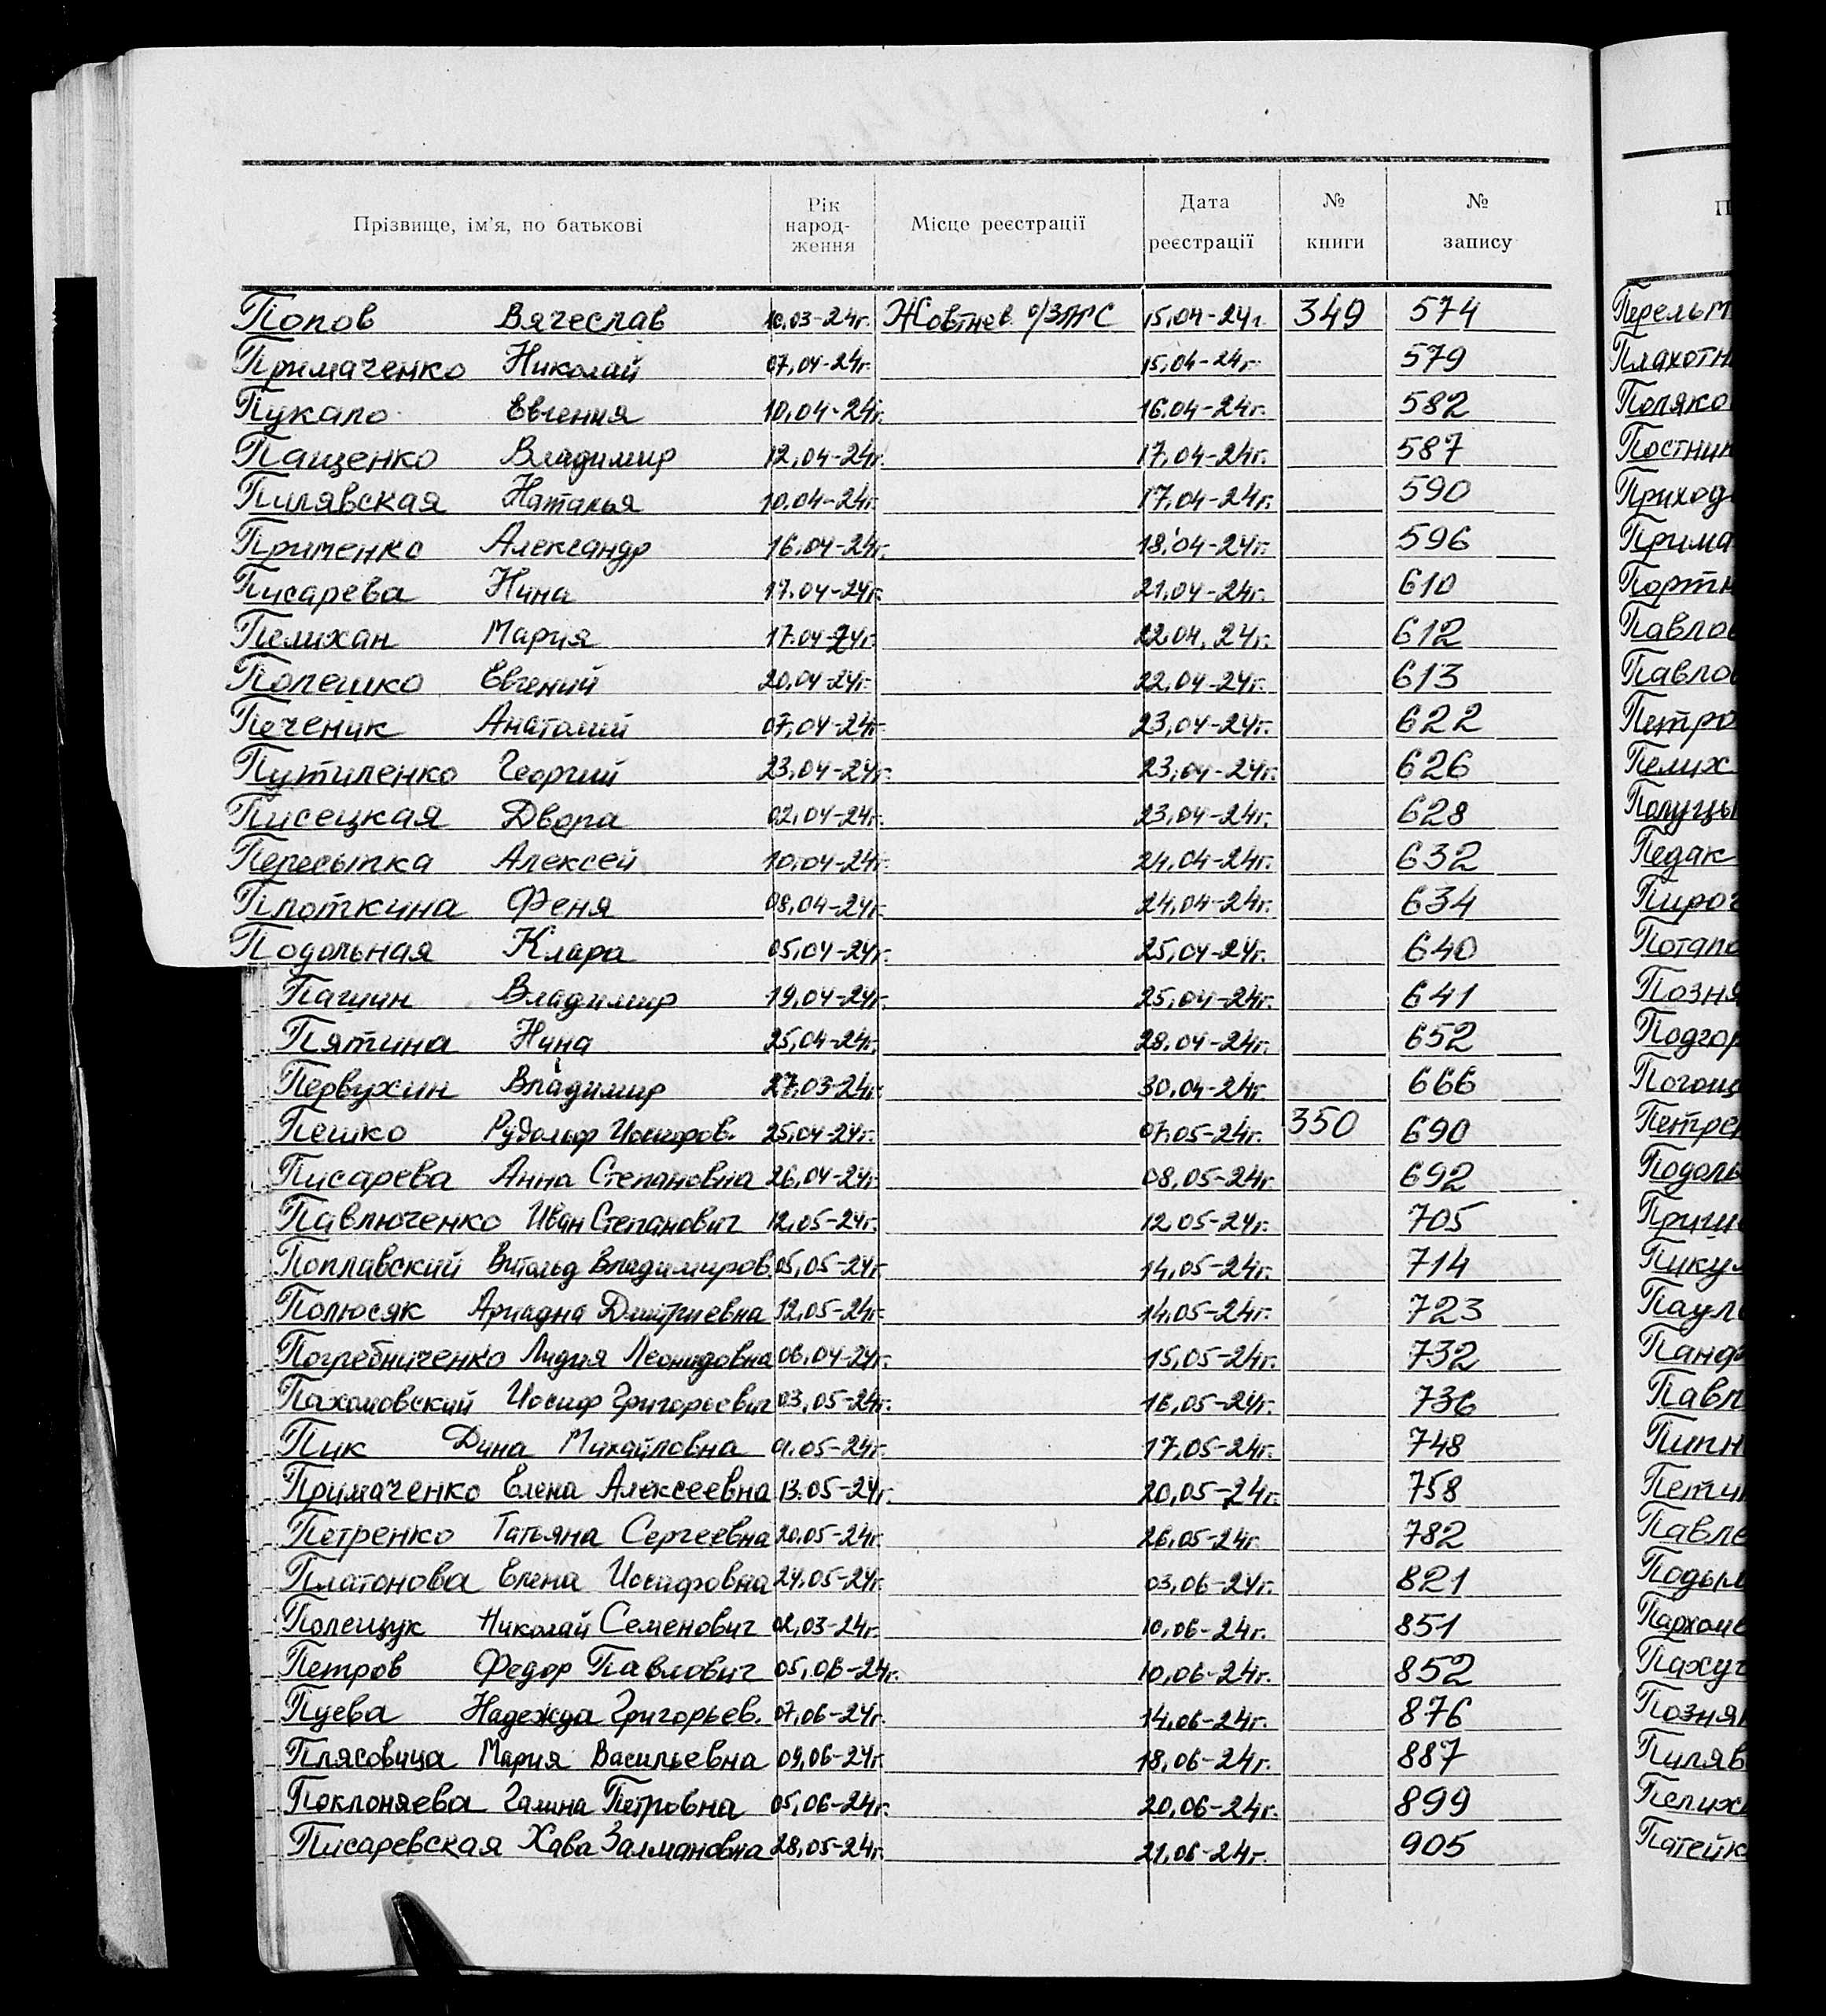 Прізвище, ім'я, по батькові Рік народ- ження Місце реєстрації Дата реєстрації № книги № запису
Попов Вячеслав 10.03-24г. Жовтнев. 15.04-24г. 349 574
Примаченко Николай 07.04-24г. 15.04-24г. 579
Пукало Евгения 10.04-24г. 16.04-24г. 582
Пащенко Владимир 12.04-24г. 17.04-24г. 587
Пилявская Наталья 10.04-24г. 17.04-24г. 590
Применко Александр 16.04-24г. 18.04-24г. 596
Писарева Нина 17.04-24г. 21.04-24г. 610
Пелихан Мария 17.04-24г. 22.04.24г. 612
Полешко Евгений 20.04-24г. 22.04-24г. 613
Печеник Анатолий 07.04-24г. 23.04-24г. 622
Путиленко Георгий 23.04-24г. 23.04-24г. 626
Писецкая Двора 02.04-24г. 23.04-24г. 628
Пересыпка Алексей 10.04-24г. 24.04-24г. 632
Плоткина Феня 08.04-24г. 24.04-24г. 634
Подольная Клара 05.04-24г. 25.04-24г. 640
Пашин Владимир 19.04-24г. 25.04-24г. 641
Пятина Нина 25.04-24г. 28.04-24г. 652
Первухин Владимир 27.03-24г. 30.04-24г. 666
Пешко Рудольф Иосифов. 25.04-24г. 07.05-24г. 350 690
Писарева Анна Степановна 26.04-24г. 08.05-24г. 692
Павлюченко Иван Степанович 12.05-24г. 12.05-24г. 705
Поплавский Витольд Владимиров. 05.05-24г. 14.05-24г. 714
Полюсяк Ариадна Дмитриевна 12.05-24г. 14.05-24г. 723
Погребниченко Лидия Леонидовна 06.04-24г. 15.05-24г. 732
Пахомовский Иосиф Григорьевич 03.05-24г. 16.05-24г. 736
Пик Дина Михайловна 01.05-24г. 17.05-24г. 748
Примаченко Елена Алексеевна 13.05-24г. 20.05-24г. 758
Петренко Татьяна Сергеевна 20.05-24г. 26.05-24г. 782
Платонова Елена Иосифовна 24.05-24г. 03.06-24г. 821
Полещук Николай Семенович 02.03-24г. 10.06-24г. 851
Петров Федор Павлович 05.06-24г. 10.06-24г. 852
Пуева Надежда Григорьев. 07.06-24г. 14.06-24г. 876
Плясовица Мария Васильевна 09.06-24г. 18.06-24г. 887
Поклоняева Галина Петровна 05.06-24г. 20.06-24г. 899
Писаревская Хава Залмановна 28.05-24г. 21.06-24г. 905
П
Перельт
Плахотн
Поляко
Постник
Приход
Прима
Портн
Павлов
Павлов
Петро
Пелих
Полуцы
Педак
Пирог
Потапо
Позня
Подгор
Погоще
Петрен
Подоль
Прищ
Пикул
Пауль
Панф
Павл
Пипн
Петик
Павле
Подым
Пархоме
Пахуч
Позняк
Пиляв
Пелих
Патейк